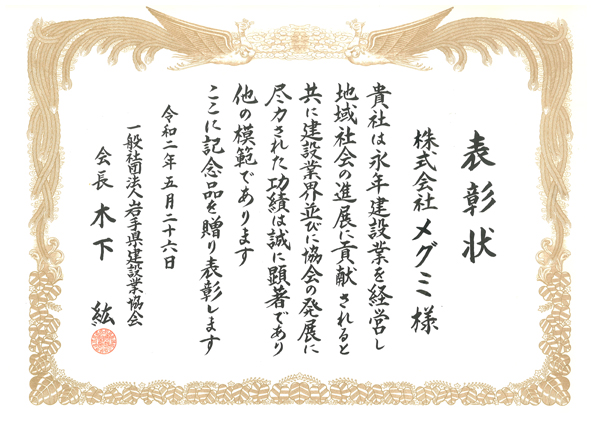 表彰状
株式会社 メグミ 様
貴社は永年建設業を経営し
地域社会の進展に貢献されると
共に建設業界並びに協会の発展に
尽力された功績は誠に顕著であり
他の模範であります
ここに記念品を贈り表彰します
令和二年五月二十六日
一般社団法人岩手県建設業協会
会長 木下 紘